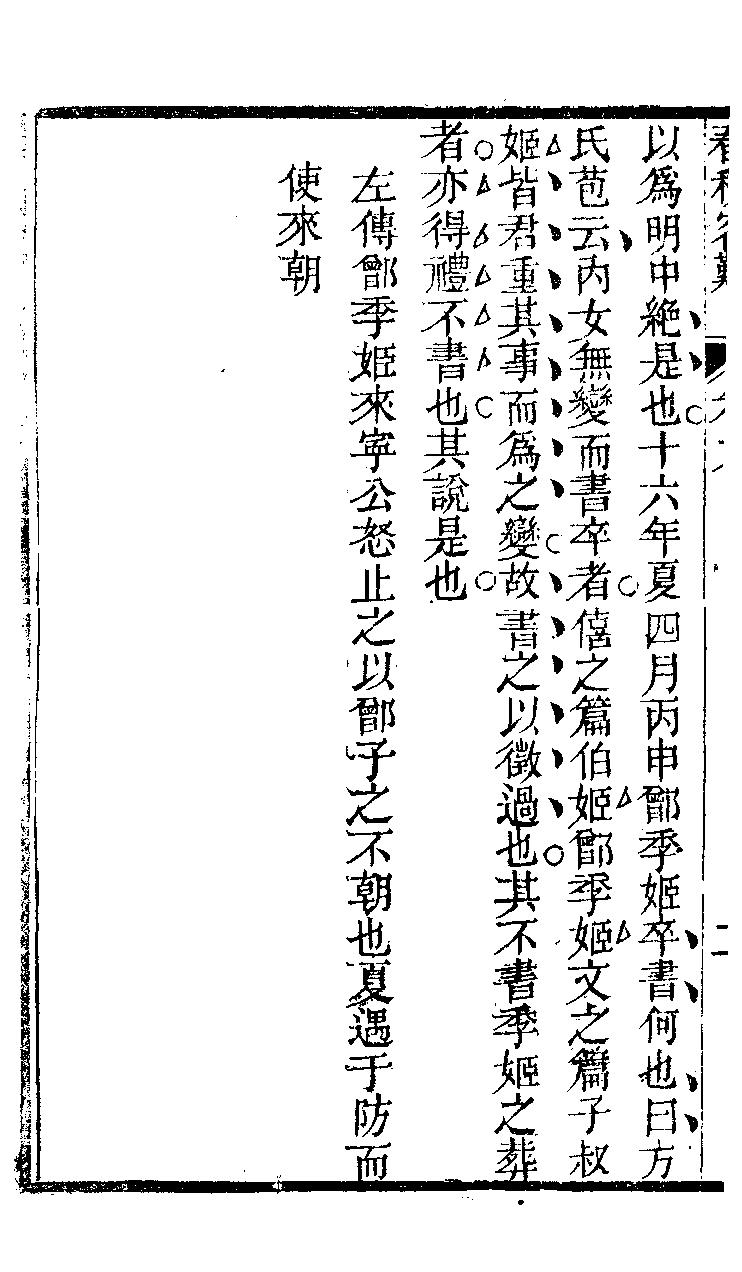 以爲明中絶是也十六年夏四月丙申鄫季姬卒書何也曰方
氏苞云内女無變而書卒者僖之篇伯姬鄫季姬文之篇子叔
姬皆君重其事而爲之變故書之以徵過也其不書季姬之葬
者亦得禮不書也其說是也
左傳鄫季姬來寧公怒止之以鄫子之不朝也夏遇于防而
使來朝
二